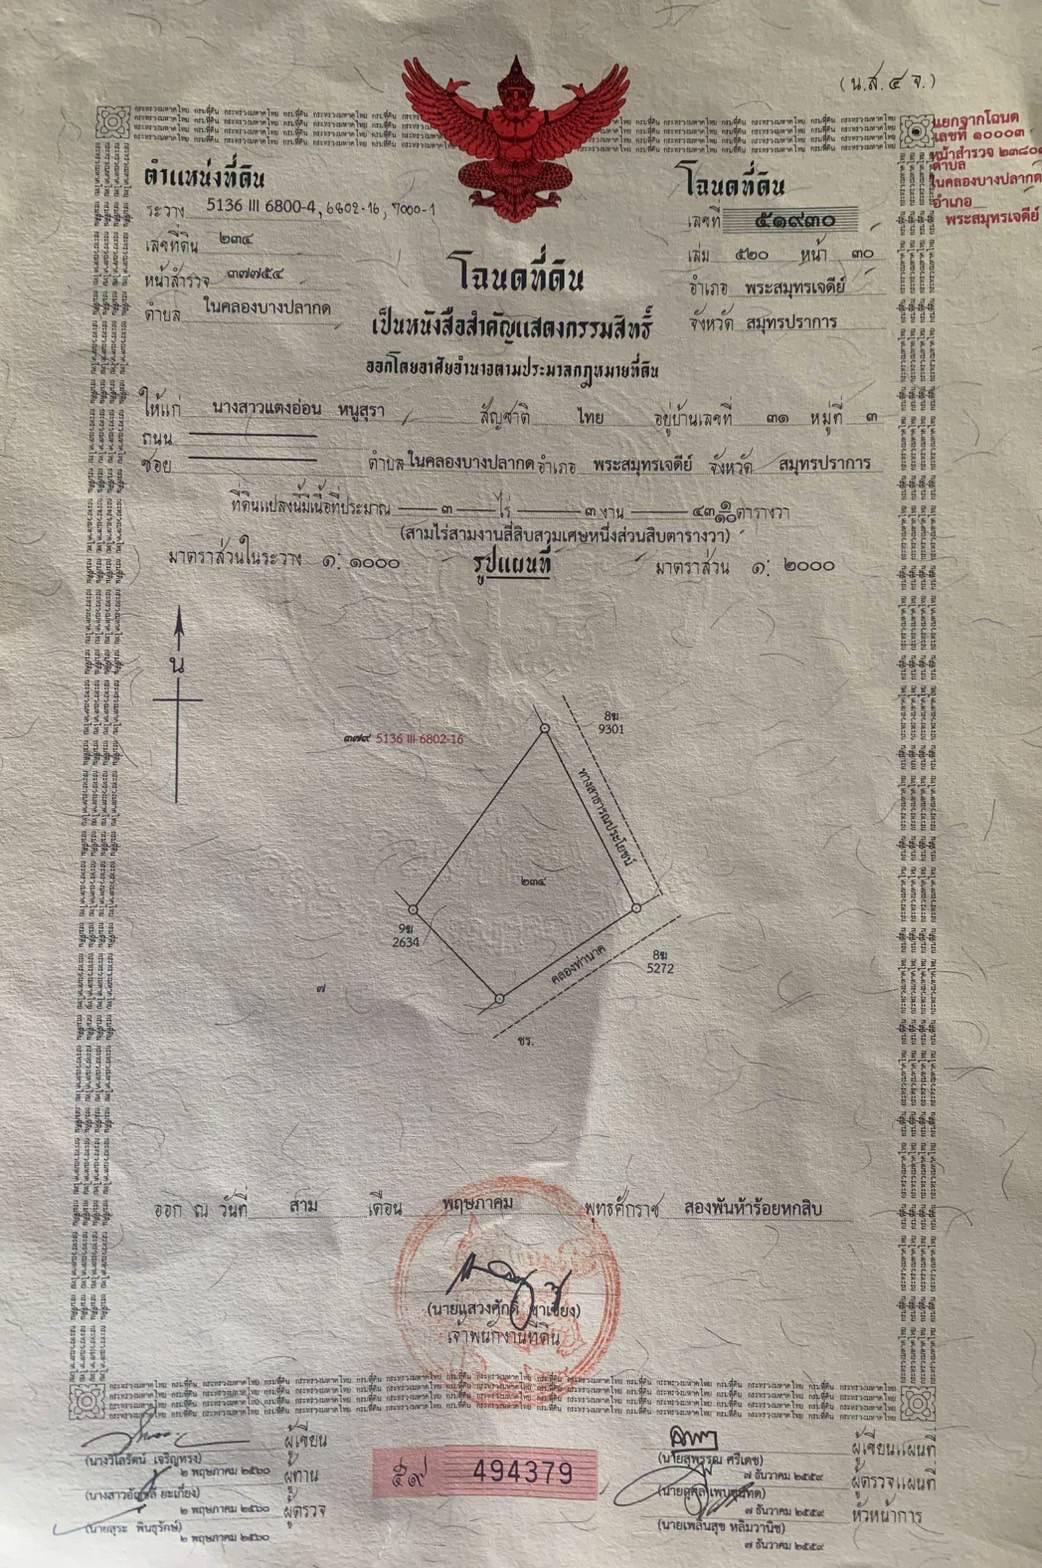 (น.ส.๔ จ.)
แยกจากโฉนด
เลขที่ ๑๐๐๐๓
หน้าสำรวจ
ตำบล
ในคลองบางปลากด
อำเภอ
พระสมุทรเจดีย์
ตำแหน่งที่ดิน
ระวาง 5136 III 6800-4, 6802-16, 7000-1
เลขที่ดิน ๒๓๔
หน้าสำรวจ ๓๗๗๕๔
ตำบล ในคลองบางปลากด
โฉนดที่ดิน
เลขที่ ๕๑๙๓๐
เล่ม ๕๒๐ หน้า ๓๐
อำเภอ พระสมุทรเจดีย์
จังหวัด สมุทรปราการ
โฉนดที่ดิน
เป็นหนังสือสำคัญแสดงกรรมสิทธิ์
ออกโดยอาศัยอำนาจตามประมวลกฎหมายที่ดิน
ให้แก่ นางสาวแตงอ่อน หนูสุรา สัญชาติ ไทย อยู่บ้านเลขที่ ๓๑ หมู่ที่ ๓
ถนน
ซอย ตำบล ในคลองบางปลากด อำเภอ พระสมุทรเจดีย์ จังหวัด สมุทรปราการ
ที่ดินแปลงนี้มีเนื้อที่ประมาณ ๓ ไร่ ๓ งาน ๔๓ ๑/๑๐ ตารางวา
(สามไร่สามงานสี่สิบสามเศษหนึ่งส่วนสิบตารางวา)
มาตราส่วนในระวาง ๑:๑๐๐๐ รูปแผนที่ มาตราส่วน ๑:๒๐๐๐
น
8ฆ
9301
๓๗๙ 5136 III 6802-16
ทางสาธารณประโยชน์
๒๓๔
9ฆ
2634
คลองท่านาค
8ฆ
5272
๗
ชร.
ออก ณ วันที่ สาม เดือน พฤษภาคม พุทธศักราช สองพันห้าร้อยหกสิบ
เจ้าพนักงานที่ดิน
ผู้เขียน
(นางวิไลรัตน์ เจริญทรง)
๒ พฤษภาคม ๒๕๖๐
ผู้ทาน
๒ พฤษภาคม ๒๕๖๐
ผู้ตรวจ
(นายสุระ พันธุรักษ์)
๒ พฤษภาคม ๒๕๖๐
๕๙ 494379
ผู้เขียนแผนที่
๗ ธันวาคม ๒๕๕๙
ผู้ตรวจแผนที่
๗ ธันวาคม ๒๕๕๙
หัวหน้าการ
(นายเพลินสุข หลิมวานิช)
๗ ธันวาคม ๒๕๕๙